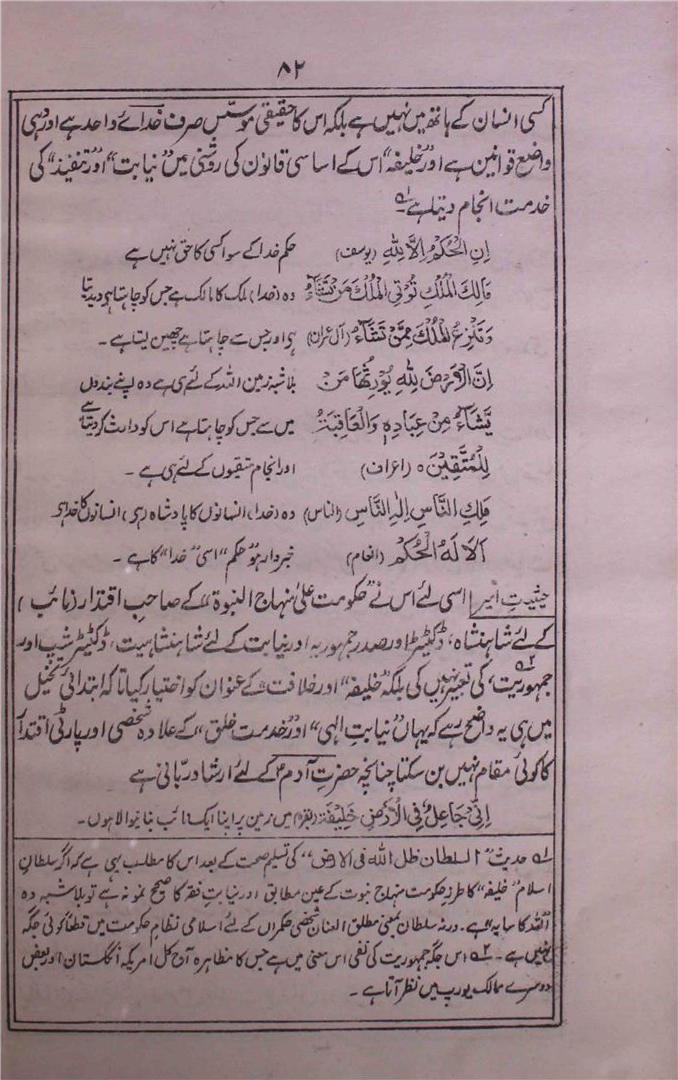 ۸۲
کسی انسان کے ہاتھ میں نہیں ہے بلکہ اس کا حقیقی مؤسّس صرف خدائے واحد ہے اور وہی
واضع قوانین ہے اور "خلیفہ" اس کے اساسی قانون کی روشنی میں "نیابت" اور "تنفیذ" کی
خدمت انجام دیتا ہے۔ ۱؎
اِنِ الْحُکْمُ اِلَّا لِلّٰہِ (یوسف) حکم خدا کے سوا کسی کا حق نہیں ہے
مَالِکَ الْمُلْکِ تُوْتِی الْمُلْکَ مَنْ تَشَآءُ وہ (خدا) ملک کا مالک ہے جس کو چاہتا ہی دیدیتا
وَتَنْزِعُ الْمُلْکَ مِمَّنْ تَشَآءُ (آل عمران) ہی اور جس سے چاہتا ہے چھین لیتا ہے۔
اِنَّ الْاَرْضَ لِلّٰہِ یُوْرِثُھَا مَنْ بلا شبہ زمین اللہ کے لئے ہی ہے وہ اپنے بندوں
یَّشَآءُ مِنْ عِبَادِہٖ وَالْعَاقِبَۃُ میں سے جس کو چاہتا ہے اس کو وارث کر دیتا ہے
لِلْمُتَّقِیْنَ ہ (اعراف) اور انجام متقیوں کے لئے ہی ہے۔
مَلِکِ النَّاسِ اِلٰہِ النَّاسِ (الناس) وہ (خدا) انسانوں کا پادشاہ ہی، انسانوں کا خدا ہی
اَلَا لَہُ الْحُکْمُ (انعام) خبردار ہو "حکم" "اسی" خدا "کا ہے۔
حیثیتِ امیر اسی لئے اس نے "حکومت علیٰ منہاج النبوۃ" کے صاحبِ اقتدار (نائب)
کے لئے شاہنشاہ، ڈکٹیٹر اور صدر جمہوریہ اور نیابت کے لئے شاہنشاہیت، ڈکٹیٹر شپ اور
جمہوریت، ۲؎ کی تعبیر نہیں کی بلکہ "خلیفہ" اور خلافت" کے عنوان کو اختیار کیا تاکہ ابتدائی تخیل
میں ہی یہ واضح رہے کہ یہاں "نیابتِ الٰہی" اور "خدمتِ خلق" کے علاوہ شخصی اور پارٹی اقتدار
کا کوئی مقام نہیں بن سکتا چنانچہ حضرتِ آدمؑ کے لئے ارشادِ ربّانی ہے
اِنِّیْ جَاعِلٌ فِی الْاَرْضِ خَلِیْفَۃً (بقرہ) میں زمین پر اپنا ایک نائب بنانیوالا ہوں۔
۱؎ حدیث "السلطان ظل اللہ فی الارض" کی تسلیم صحت کے بعد اس کا مطلب یہی ہے کہ اگر سلطانِ
اسلام "خلیفہ" کا طرزِ حکومت منہاج نبوت کے عین مطابق اور نیابتِ فقر کا صحیح نمونہ ہے تو بلا شبہ وہ
"اللہ کا سایہ" ہے۔ ورنہ سلطان بمعنی مطلق العنان شخصی حکمراں کے لئے اسلامی نظامِ حکومت میں قطعاً کوئی جگہ
نہیں ہے۔ ۲؎ اس جگہ جمہوریت کی نفی اس معنی میں ہے جس کا مظاہرہ آج کل امریکہ، انگلستان اور بعض
دوسرے ممالک یورپ میں نظر آتا ہے۔